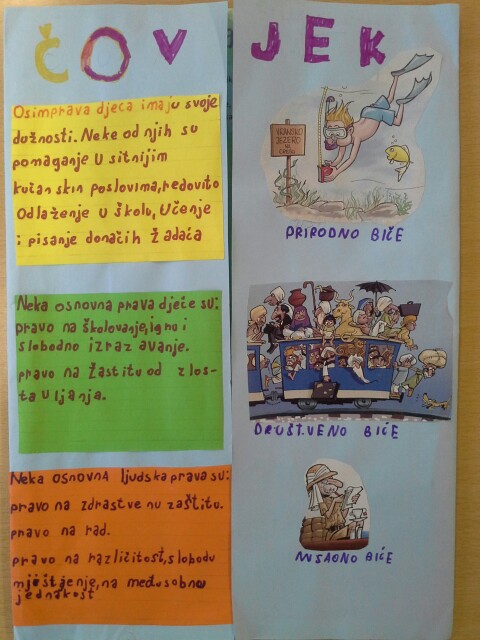 ČOV
JEK
Osimprava djeca imaju svoje
dužnosti. Neke od njih su
pomaganje u sitnijim
kućanskin poslovima, redovito
odlaženje u školu, učenje
i pisanje donaćih žadaća
Neka osnovna prava djeće su:
pravo na školovanje, igru i
slobodno izražavanje.
pravo na žastitu od zlos-
tavljanja.
Neka osnovna ljudska prava su:
pravo na zdrastvenu zaštitu.
pravo na rad.
pravo na različitost, slobodu
mješljenje, na međusobnu
jednakost
VRANSKO
JEZERO
NA
CRESU
PRIRODNO BIĆE
DRUŠTVENO BIĆE
MISAONO BIĆE